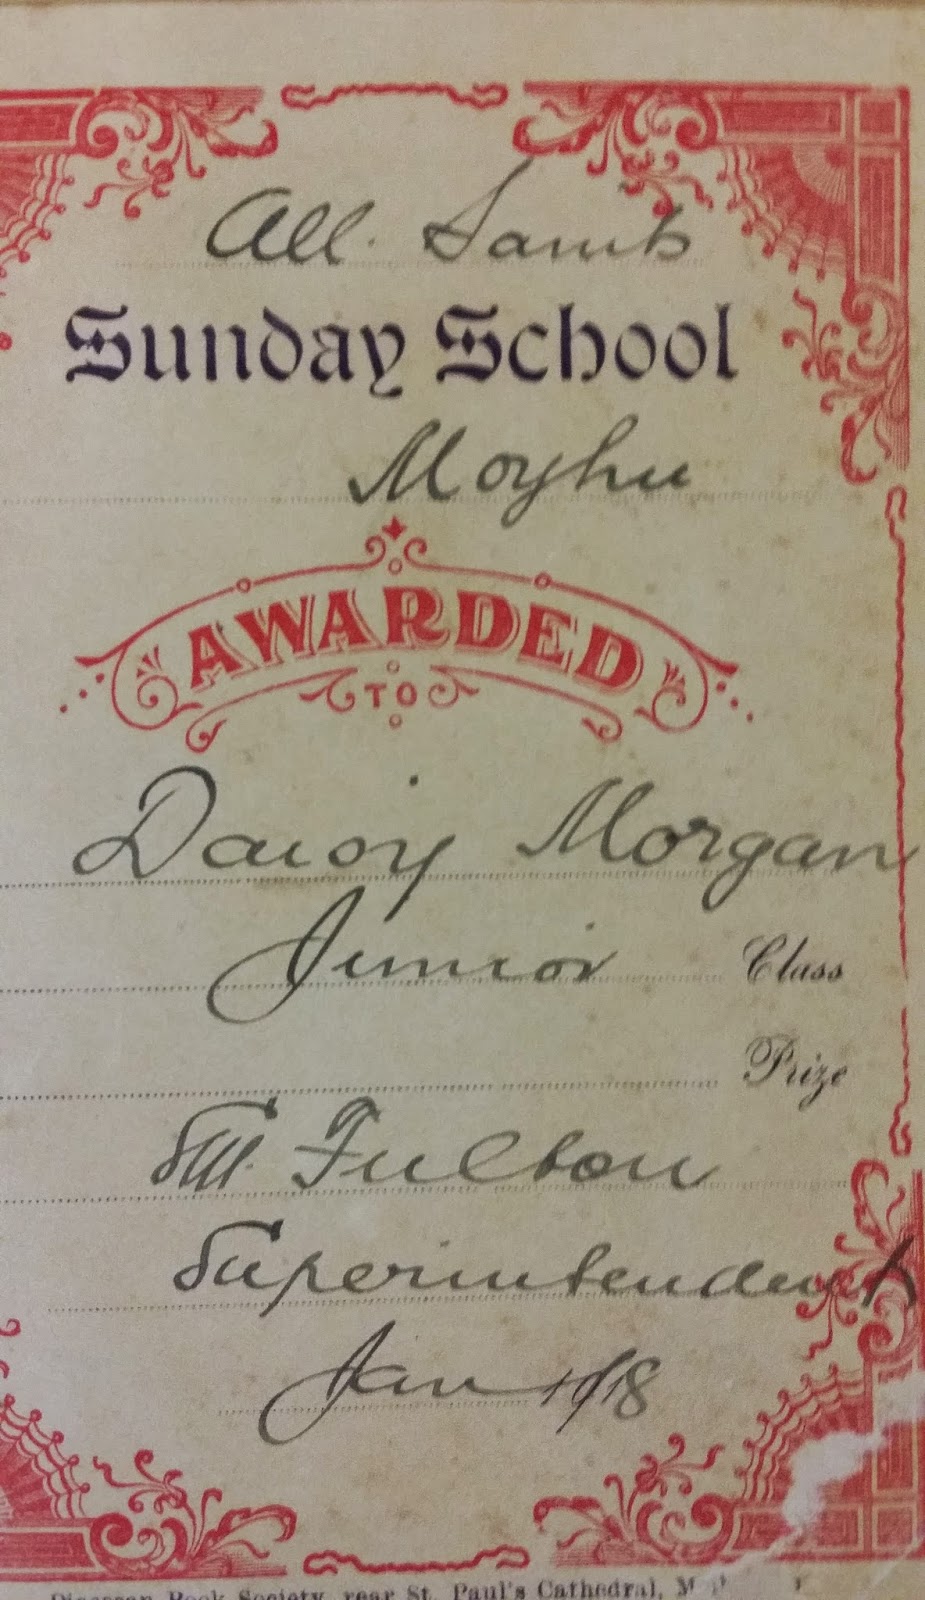 All Saints
Sunday School
Moyhu
AWARDED
TO
Daisy Morgan
Junior Class
Prize
Fulton
Superintendent
Jan 1918
Diocesan Book Society, rear St. Paul's Cathedral,